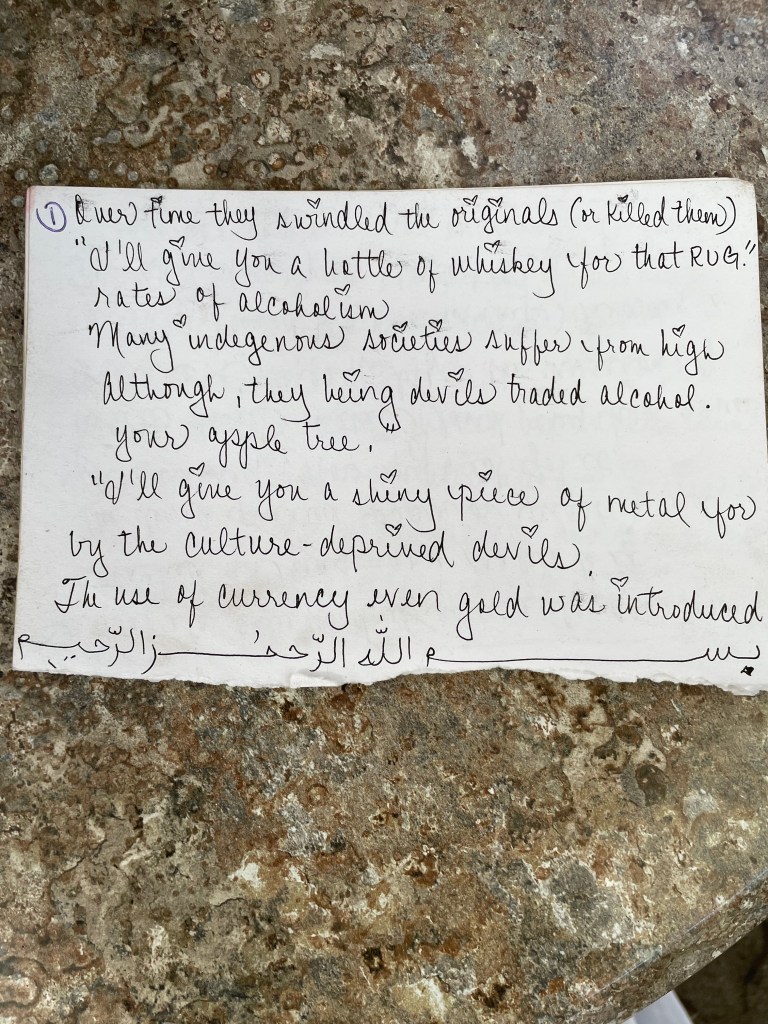 ① Over time they swindled the originals (or killed them)
"I'll give you a bottle of whiskey for that RUG."
rates of alcoholism
Many indegenous societies suffer from high
Although, they being devils traded alcohol.
your apple tree."
"I'll give you a shiny piece of metal for
by the culture-deprived devils.
The use of currency even gold was introduced
بسم اللّه الرّحمٰن الرّحيم